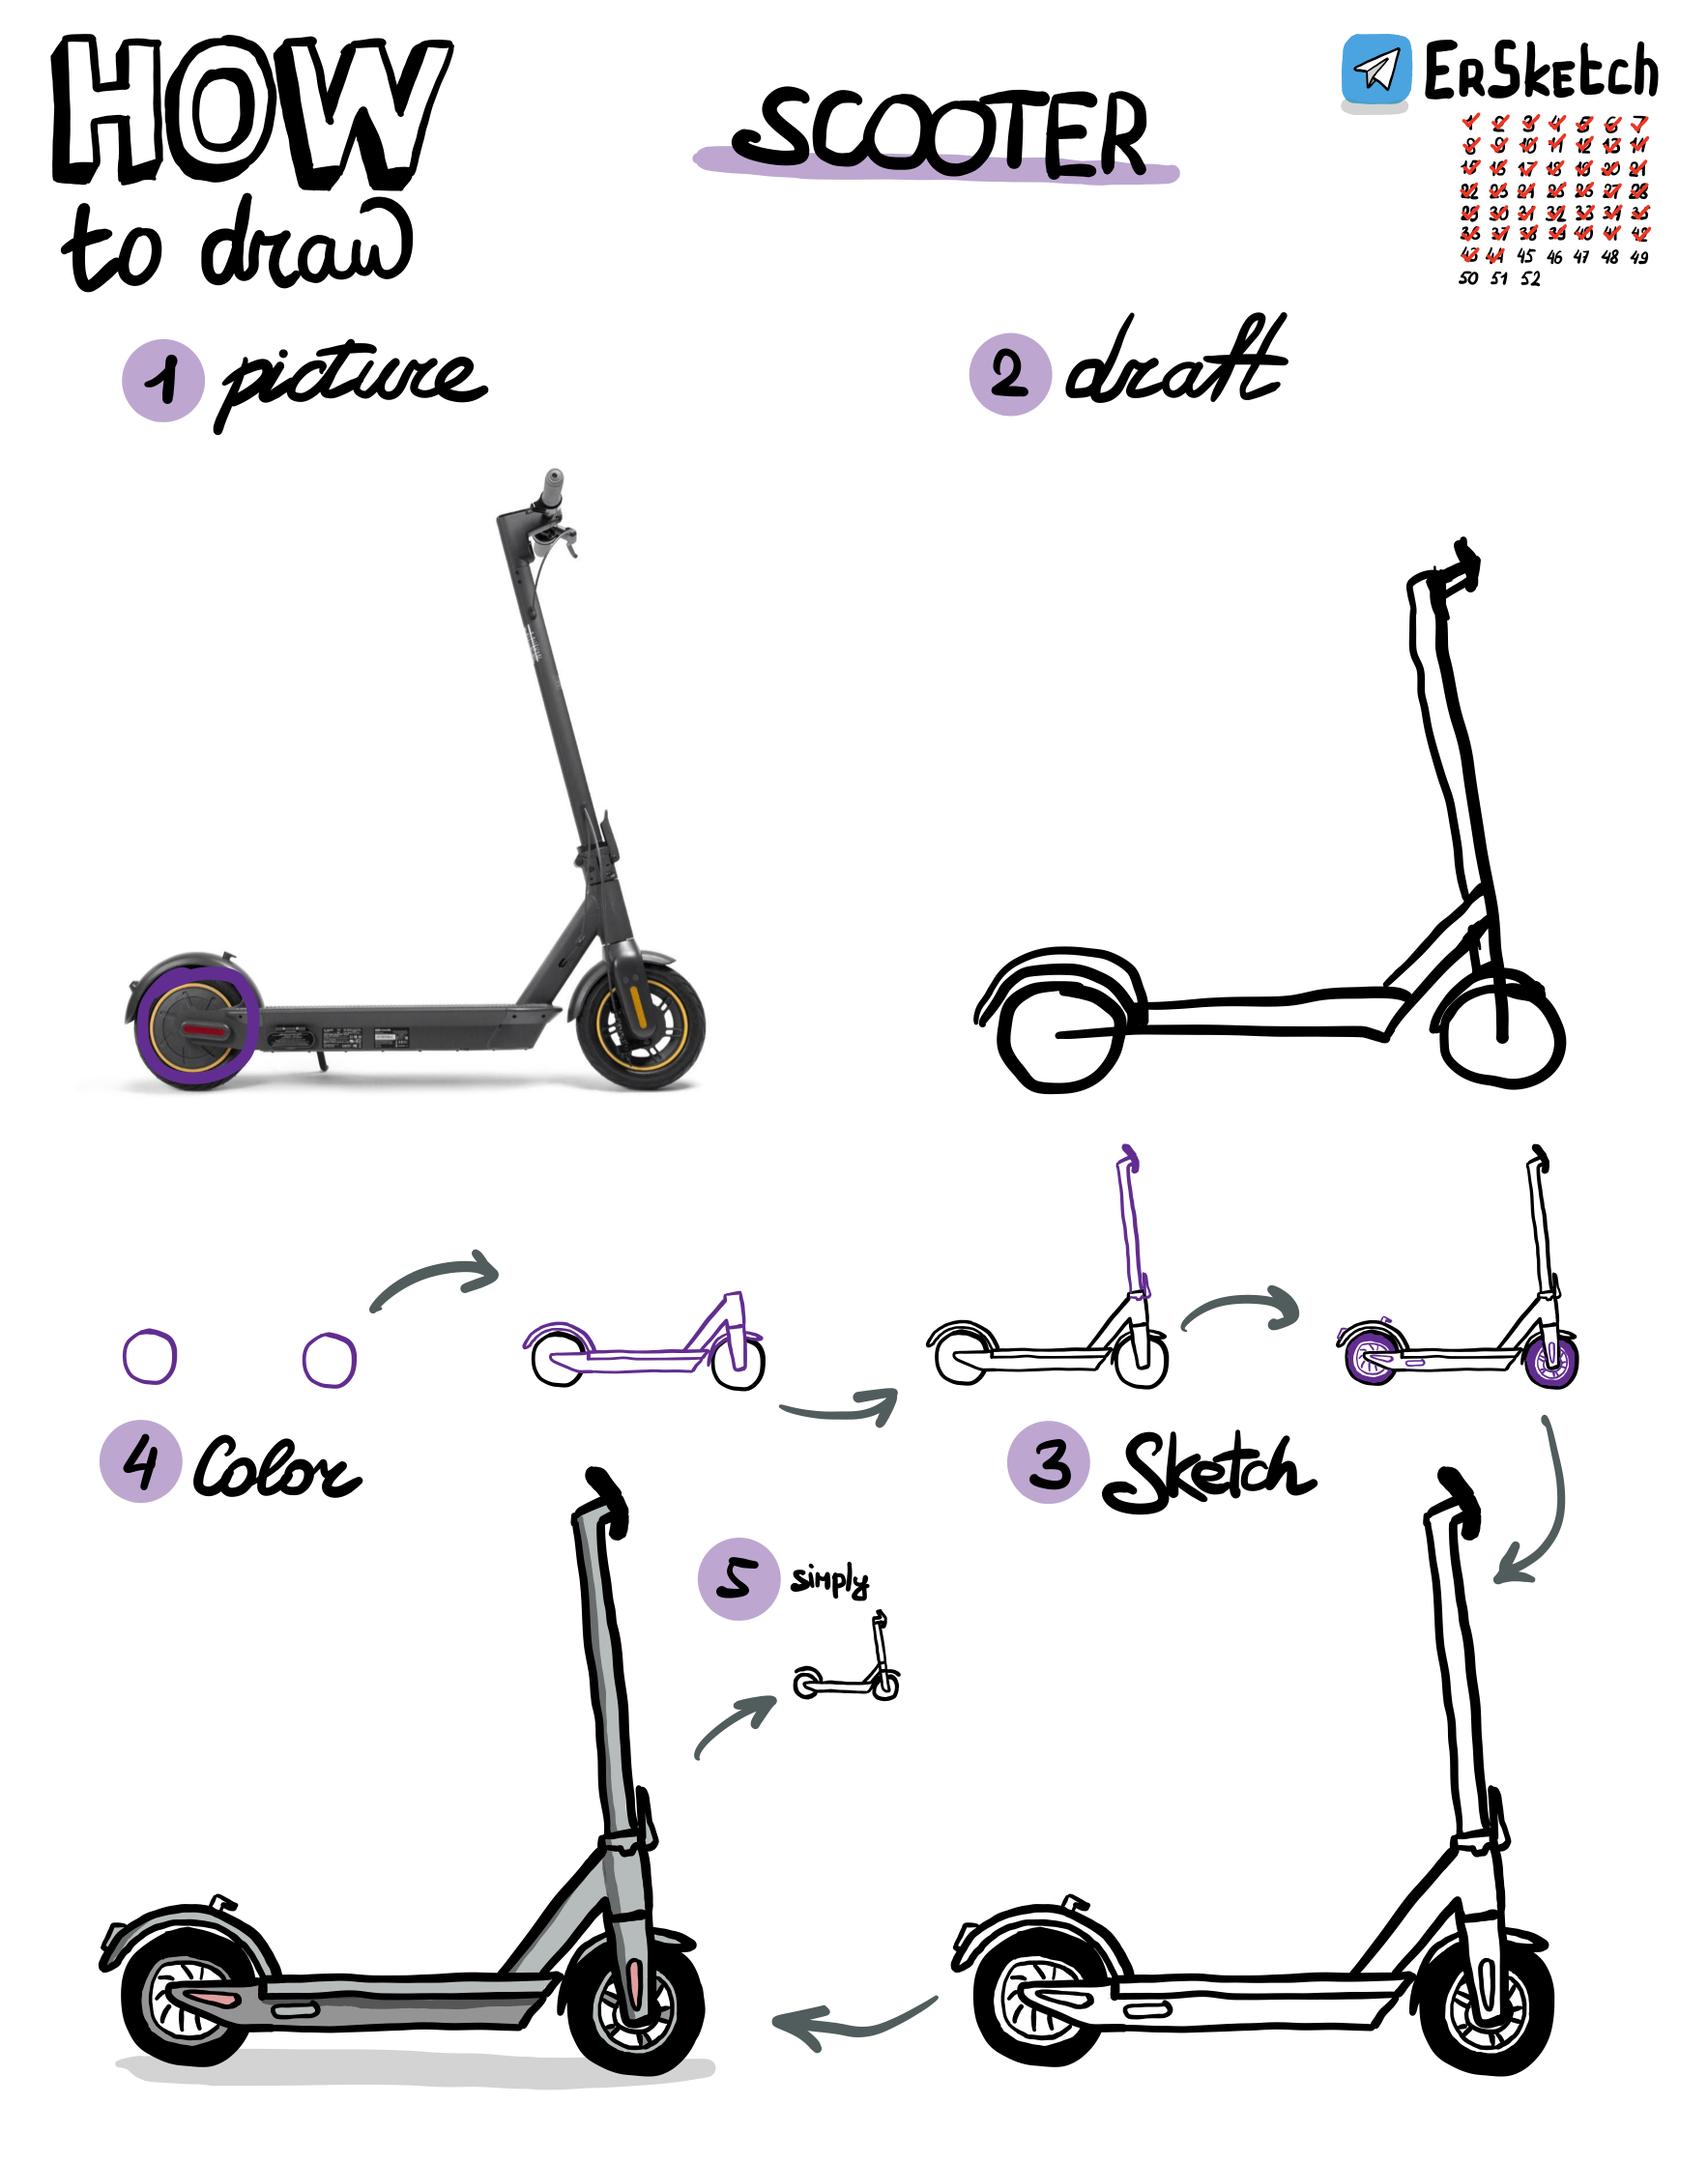 HOW
to draw
SCOOTER
ErSketch
1 2 3 4 5 6 7
8 9 10 11 12 13 14
15 16 17 18 19 20 21
22 23 24 25 26 27 28
29 30 31 32 33 34 35
36 37 38 39 40 41 42
43 44 45 46 47 48 49
50 51 52
1 picture
2 draft
4 Color
3 Sketch
5 simply